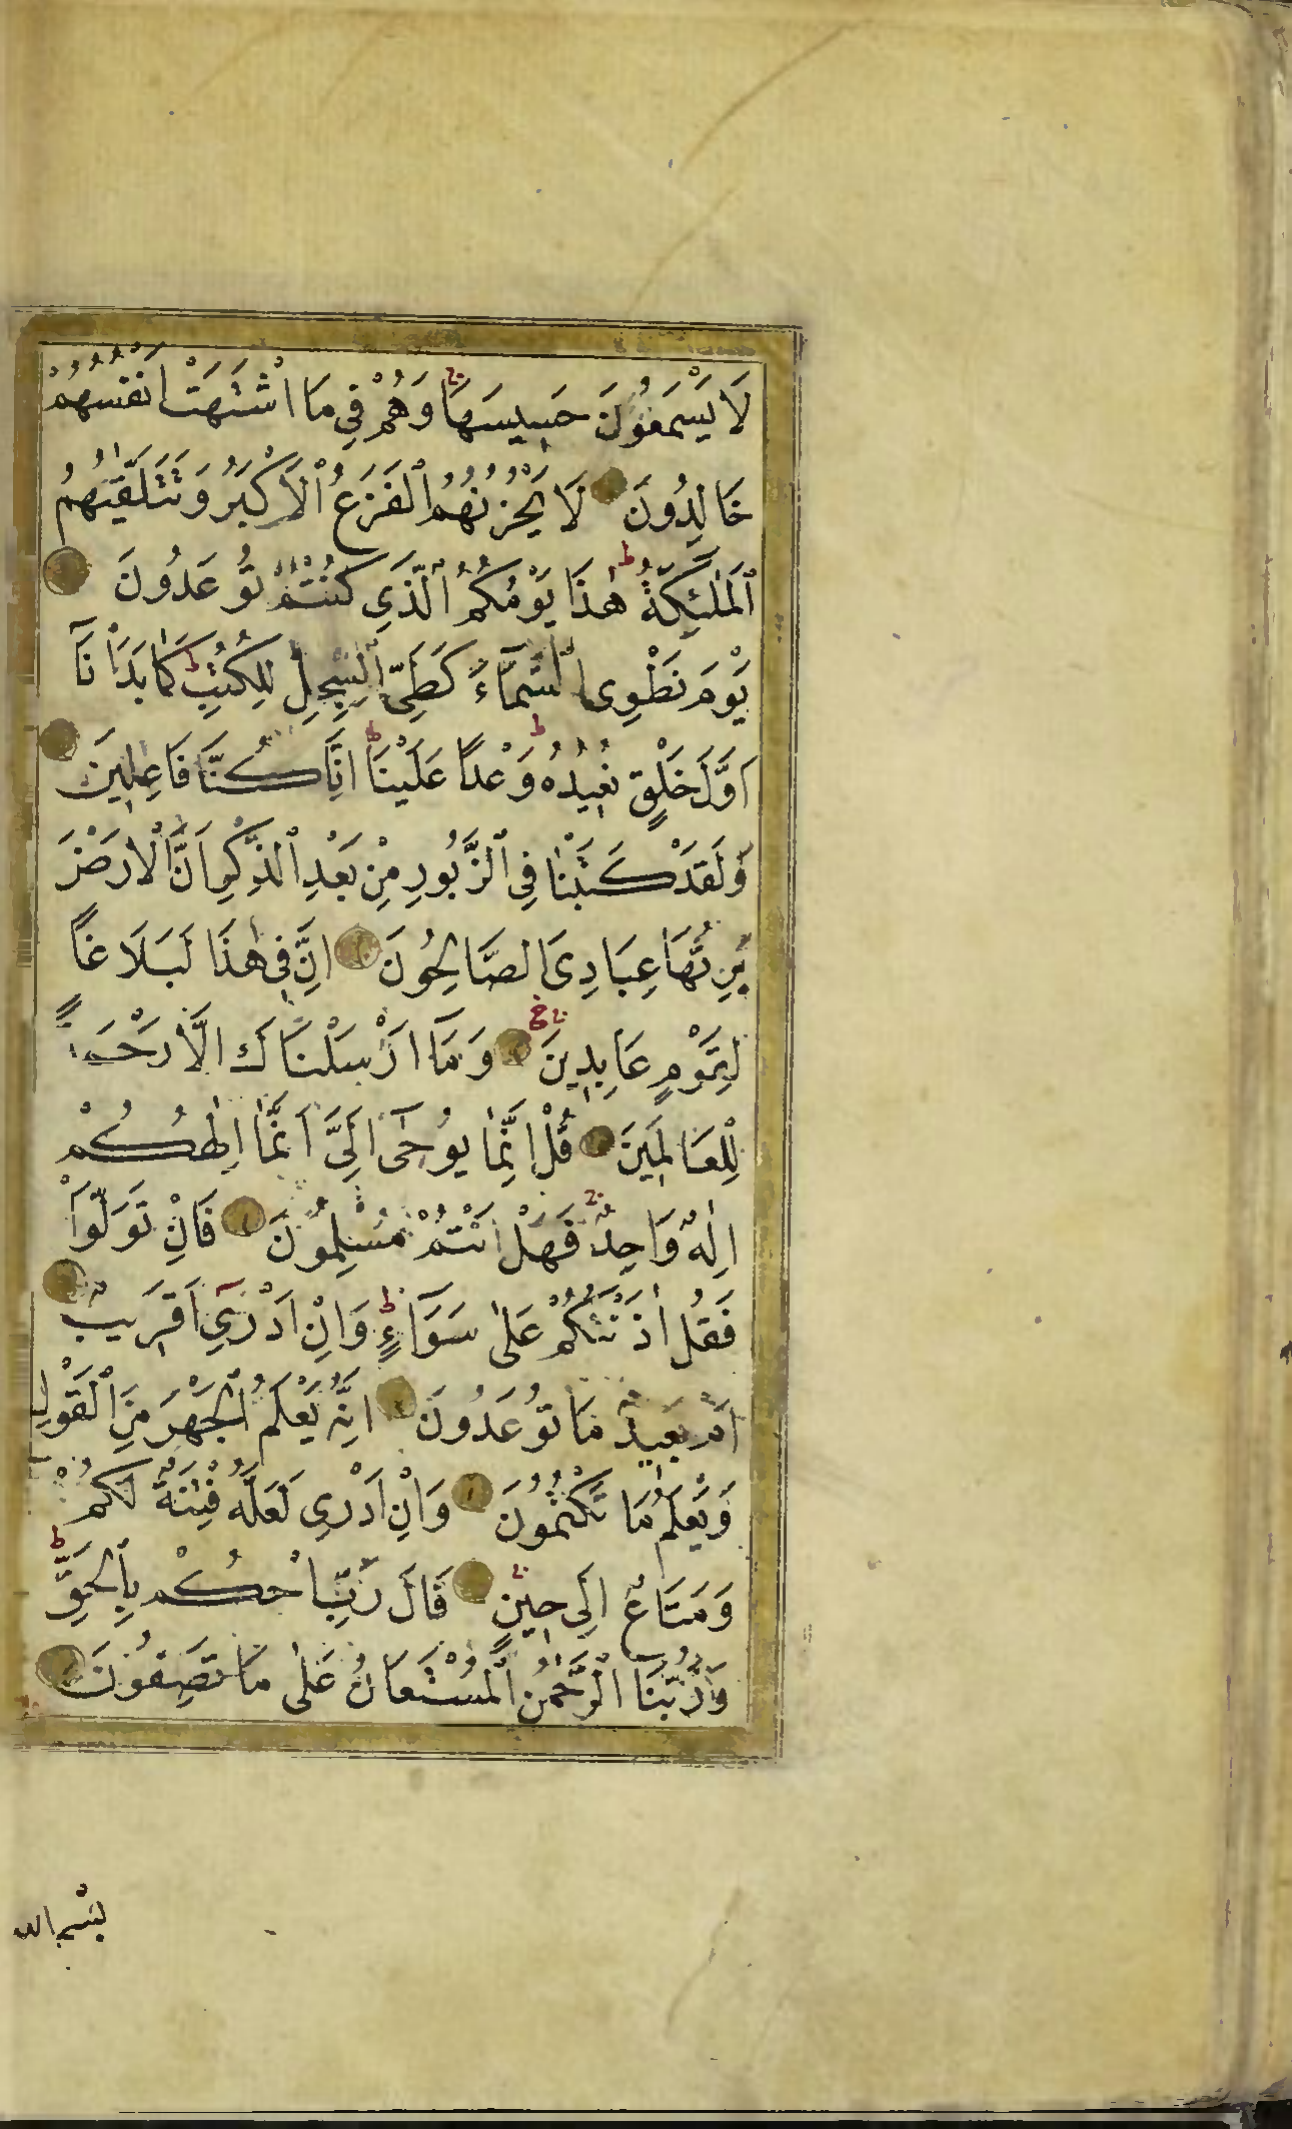 لَا يَسْمَعُونَ حَسِيسَهَا وَهُمْ فِي مَا اشْتَهَتْ اَنْفُسُهُمْ
خَالِدُونَ لَا يَحْزُنُهُمُ الْفَزَعُ الْاَكْبَرُ وَتَتَلَقّٰيهُمُ
الْمَلٰٓئِكَةُ ط هٰذَا يَوْمُكُمُ الَّذِي كُنْتُمْ تُوعَدُونَ
يَوْمَ نَطْوِى السَّمَٓاءَ كَطَىِّ السِّجِلِّ لِلْكُتُبِ ط كَمَا بَدَاْنَٓا
اَوَّلَ خَلْقٍ نُعِيدُهُ ط وَعْدًا عَلَيْنَا ط اِنَّا كُنَّا فَاعِلِينَ
وَلَقَدْ كَتَبْنَا فِى الزَّبُورِ مِنْ بَعْدِ الذِّكْرِ اَنَّ الْاَرْضَ
يَرِثُهَا عِبَادِىَ الصَّالِحُونَ اِنَّ فِى هٰذَا لَبَلَاغًا
لِقَوْمٍ عَابِدِينَ وَمَٓا اَرْسَلْنَاكَ اِلَّا رَحْمَةً
لِلْعَالَمِينَ قُلْ اِنَّمَا يُوحٰٓى اِلَىَّ اَنَّمَٓا اِلٰهُكُمْ
اِلٰهٌ وَاحِدٌ فَهَلْ اَنْتُمْ مُسْلِمُونَ فَاِنْ تَوَلَّوْا
فَقُلْ اٰذَنْتُكُمْ عَلٰى سَوَٓاءٍ ط وَاِنْ اَدْرِٓي اَقَرِيبٌ
اَمْ بَعِيدٌ مَا تُوعَدُونَ اِنَّهُ يَعْلَمُ الْجَهْرَ مِنَ الْقَوْلِ
وَيَعْلَمُ مَا تَكْتُمُونَ وَاِنْ اَدْرِى لَعَلَّهُ فِتْنَةٌ لَكُمْ
وَمَتَاعٌ اِلٰى حِينٍ قَالَ رَبِّ احْكُمْ بِالْحَقِّ ط
وَرَبُّنَا الرَّحْمٰنُ الْمُسْتَعَانُ عَلٰى مَا تَصِفُونَ
بِسْمِ الله